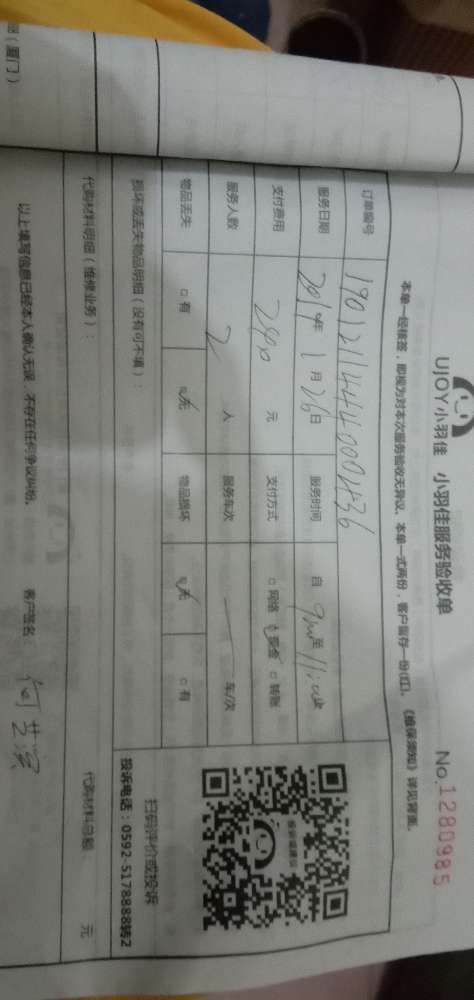 UJOY小羽佳 小羽佳服务验收单 No.1280985
本单一经核签，即视为对本次服务验收无异议、本单一式两份，客户留存一份(红)。《维保须知》详见背面。
订单编号
服务日期 2019年 1月26日 服务时间 自 至
支付费用 元 支付方式 □网络 现金 □转账
服务人数 2 人 服务车次 车/次
物品丢失 □有 无 物品损坏 无 □有
损坏或丢失物品明细（没有可不填）：
扫码评价或投诉
投诉电话：0592-5178888转2
代购材料明细（维修业务）： 代购材料总额： 元
以上填写信息已经本人确认无误，不存在任何争议纠纷。 客户签名：
（厦门）